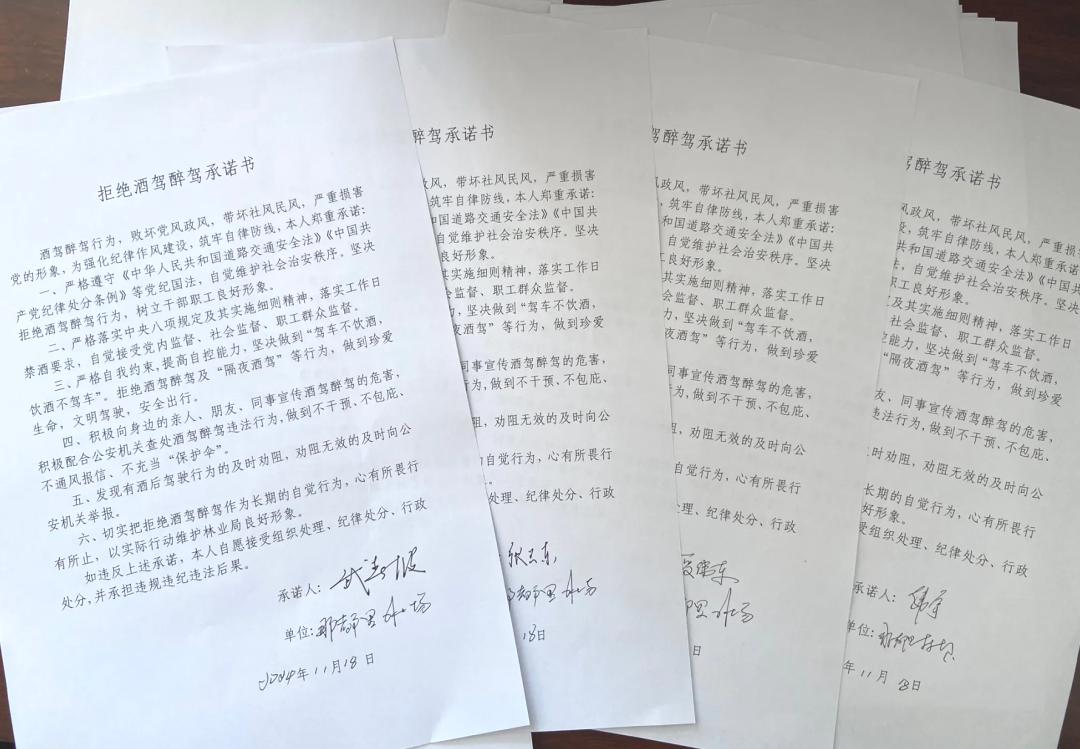 拒绝酒驾醉驾承诺书
酒驾醉驾行为，败坏党风政风，带坏社风民风，严重损害
党的形象，为强化纪律作风建设，筑牢自律防线，本人郑重承诺：
一、严格遵守《中华人民共和国道路交通安全法》《中国共
产党纪律处分条例》等党纪国法，自觉维护社会治安秩序。坚决
拒绝酒驾醉驾行为，树立干部职工良好形象。
二、严格落实中央八项规定及其实施细则精神，落实工作日
禁酒要求，自觉接受党内监督、社会监督、职工群众监督。
三、严格自我约束，提高自控能力，坚决做到“驾车不饮酒，
饮酒不驾车”。拒绝酒驾醉驾及“隔夜酒驾”等行为，做到珍爱
生命，文明驾驶，安全出行。
四、积极向身边的亲人、朋友、同事宣传酒驾醉驾的危害，
积极配合公安机关查处酒驾醉驾违法行为，做到不干预、不包庇、
不通风报信、不充当“保护伞”。
五、发现有酒后驾驶行为的及时劝阻，劝阻无效的及时向公
安机关举报。
六、切实把拒绝酒驾醉驾作为长期的自觉行为，心有所畏行
有所止，以实际行动维护林业局良好形象。
如违反上述承诺，本人自愿接受组织处理、纪律处分、行政
处分，并承担违规违纪违法后果。
承诺人：
单位：那都里林场
2024年11月18日
醉驾承诺书
风，带坏社风民风，严重损害
筑牢自律防线，本人郑重承诺：
国道路交通安全法》《中国共
自觉维护社会治安秩序。坚决
良好形象。
其实施细则精神，落实工作日
会监督、职工群众监督。
，坚决做到“驾车不饮酒，
隔夜酒驾”等行为，做到珍爱
同事宣传酒驾醉驾的危害，
行为，做到不干预、不包庇、
劝阻无效的及时向公
自觉行为，心有所畏行
处理、纪律处分、行政
都里林场
18日
醉驾承诺书
政风，带坏社风民风，严重损害
，筑牢自律防线，本人郑重承诺：
和国道路交通安全法》《中国共
，自觉维护社会治安秩序。坚决
工良好形象。
及其实施细则精神，落实工作日
会监督、职工群众监督。
力，坚决做到“驾车不饮酒，
夜酒驾”等行为，做到珍爱
同事宣传酒驾醉驾的危害，
行为，做到不干预、不包庇、
，劝阻无效的及时向公
自觉行为，心有所畏行
理、纪律处分、行政
里林场
日
醉驾承诺书
风政风，带坏社风民风，严重损害
设，筑牢自律防线，本人郑重承诺
共和国道路交通安全法》《中国共
，自觉维护社会治安秩序。坚决
职工良好形象。
定及其实施细则精神，落实工作日
社会监督、职工群众监督。
控能力，坚决做到“驾车不饮酒，
隔夜酒驾”等行为，做到珍爱
友、同事宣传酒驾醉驾的危害，
违法行为，做到不干预、不包庇、
及时劝阻，劝阻无效的及时向公
长期的自觉行为，心有所畏行
好形象。
受组织处理、纪律处分、行政
承诺人：
单位：
年11月18日